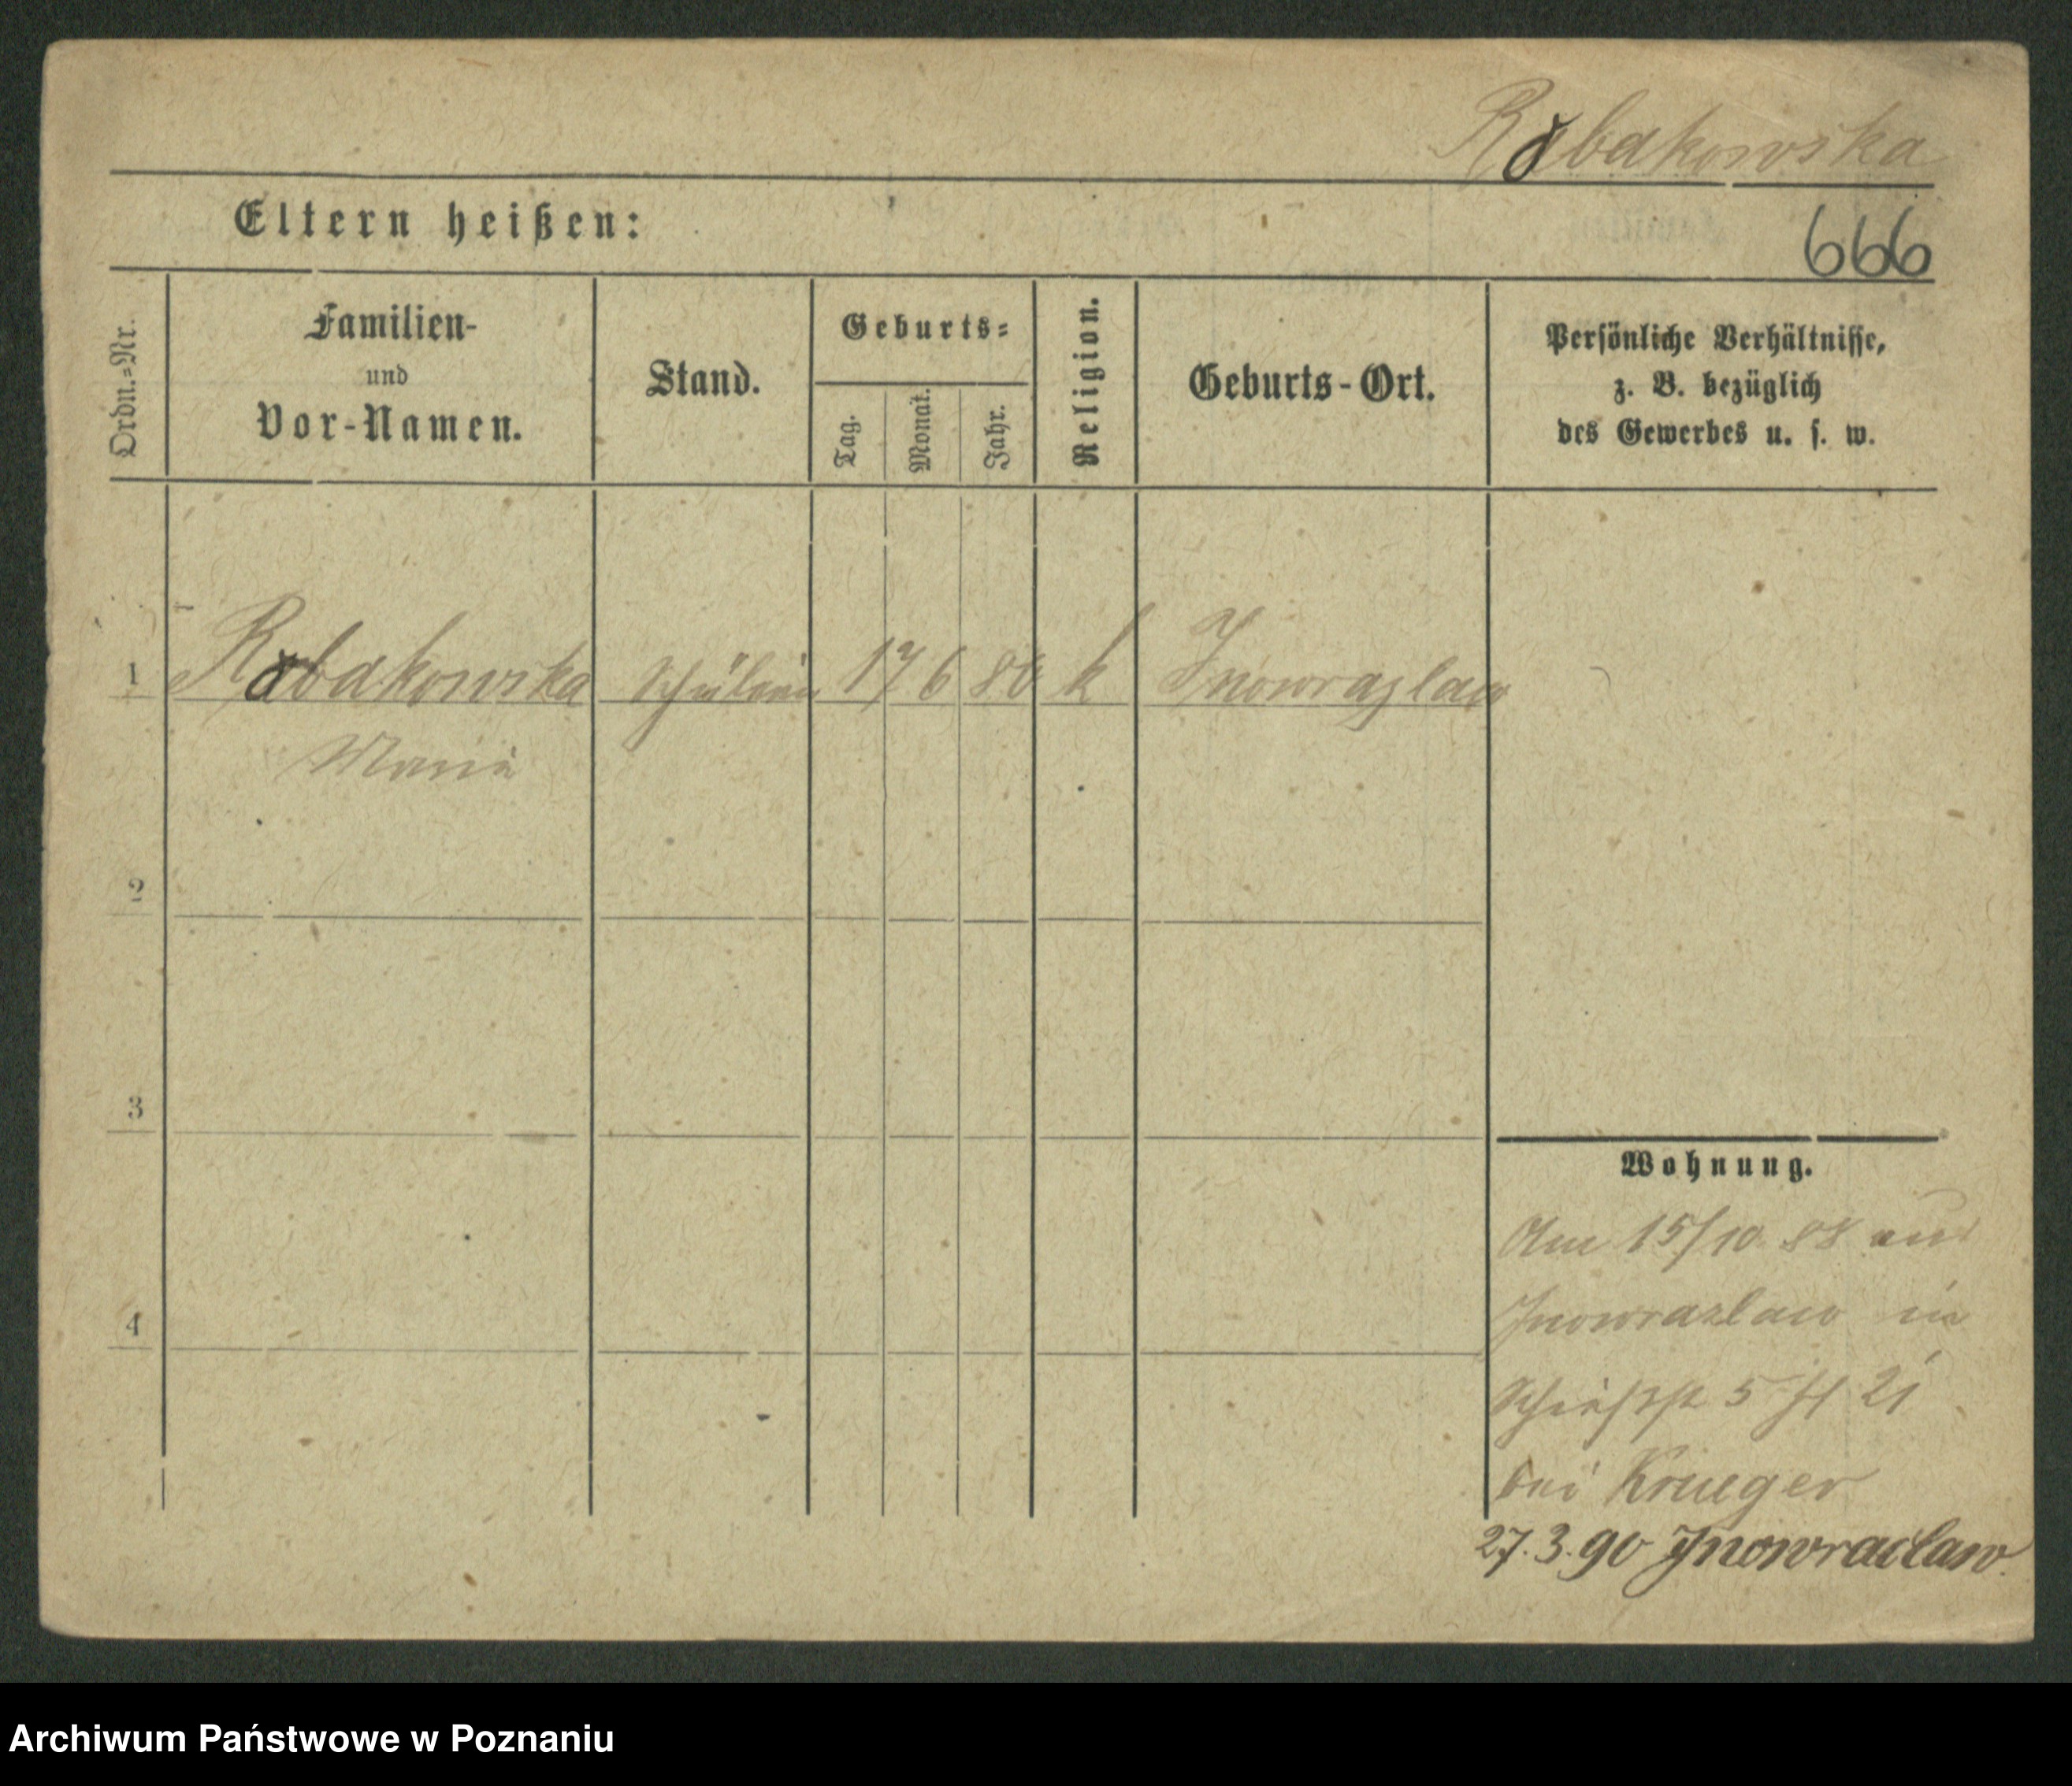 Robakowska
Eltern heißen:
666
Ordn.=Nr.
Familien-
und
Vor-Namen.
Stand.
Geburts=
Tag.
Monat.
Jahr.
Religion.
Geburts-Ort.
Persönliche Verhältnisse,
z. B. bezüglich
des Gewerbes u. s. w.
1 Robakowska Schülerin 17 6 80 k Inowrazlaw
Maria
2
3
4
Wohnung.
Am 15/10. 88 aus
Inowrazlaw in
5 H 21
bei Krueger
27.3.90 Inowraclaw.
Archiwum Państwowe w Poznaniu